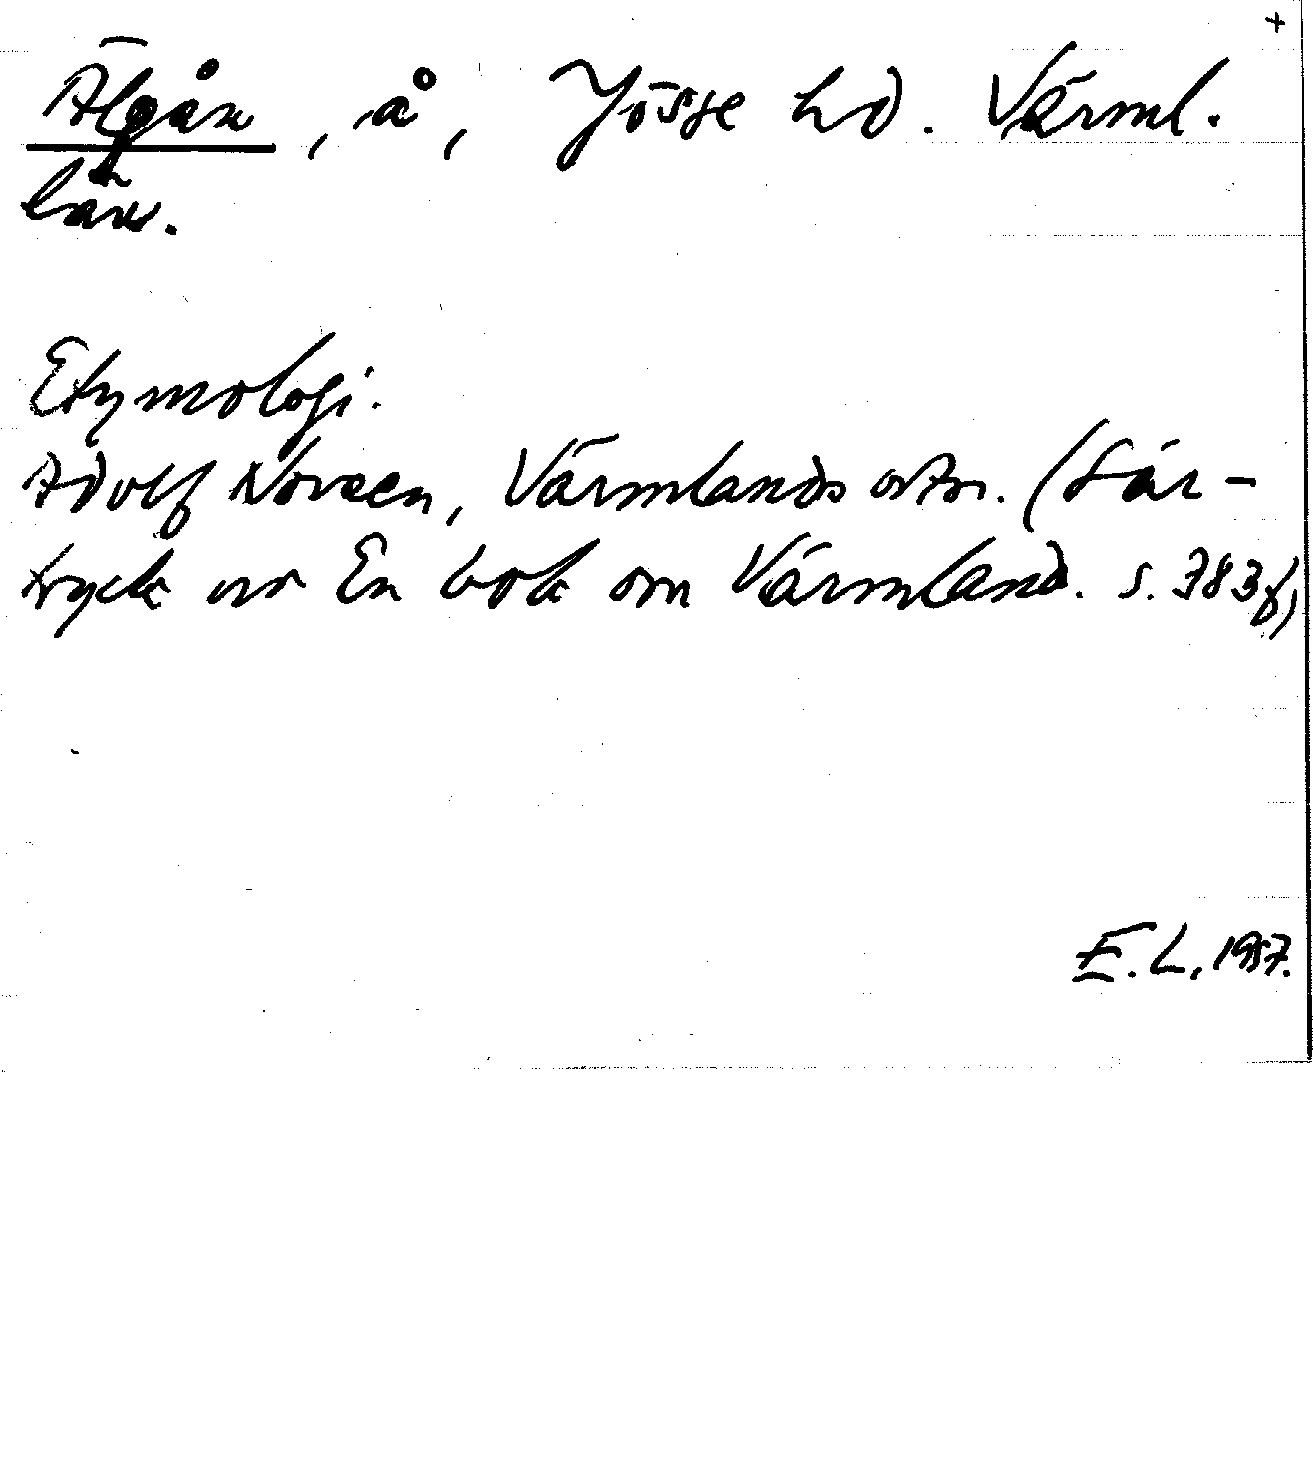 +
Älgån, å, Jösse hd. Värml.
län.
Etymologi.
Adolf Noreen, Värmlands ortn. (Sär-
tryck ur En bok om Värmland. s. 383f)
E.L. 1957.